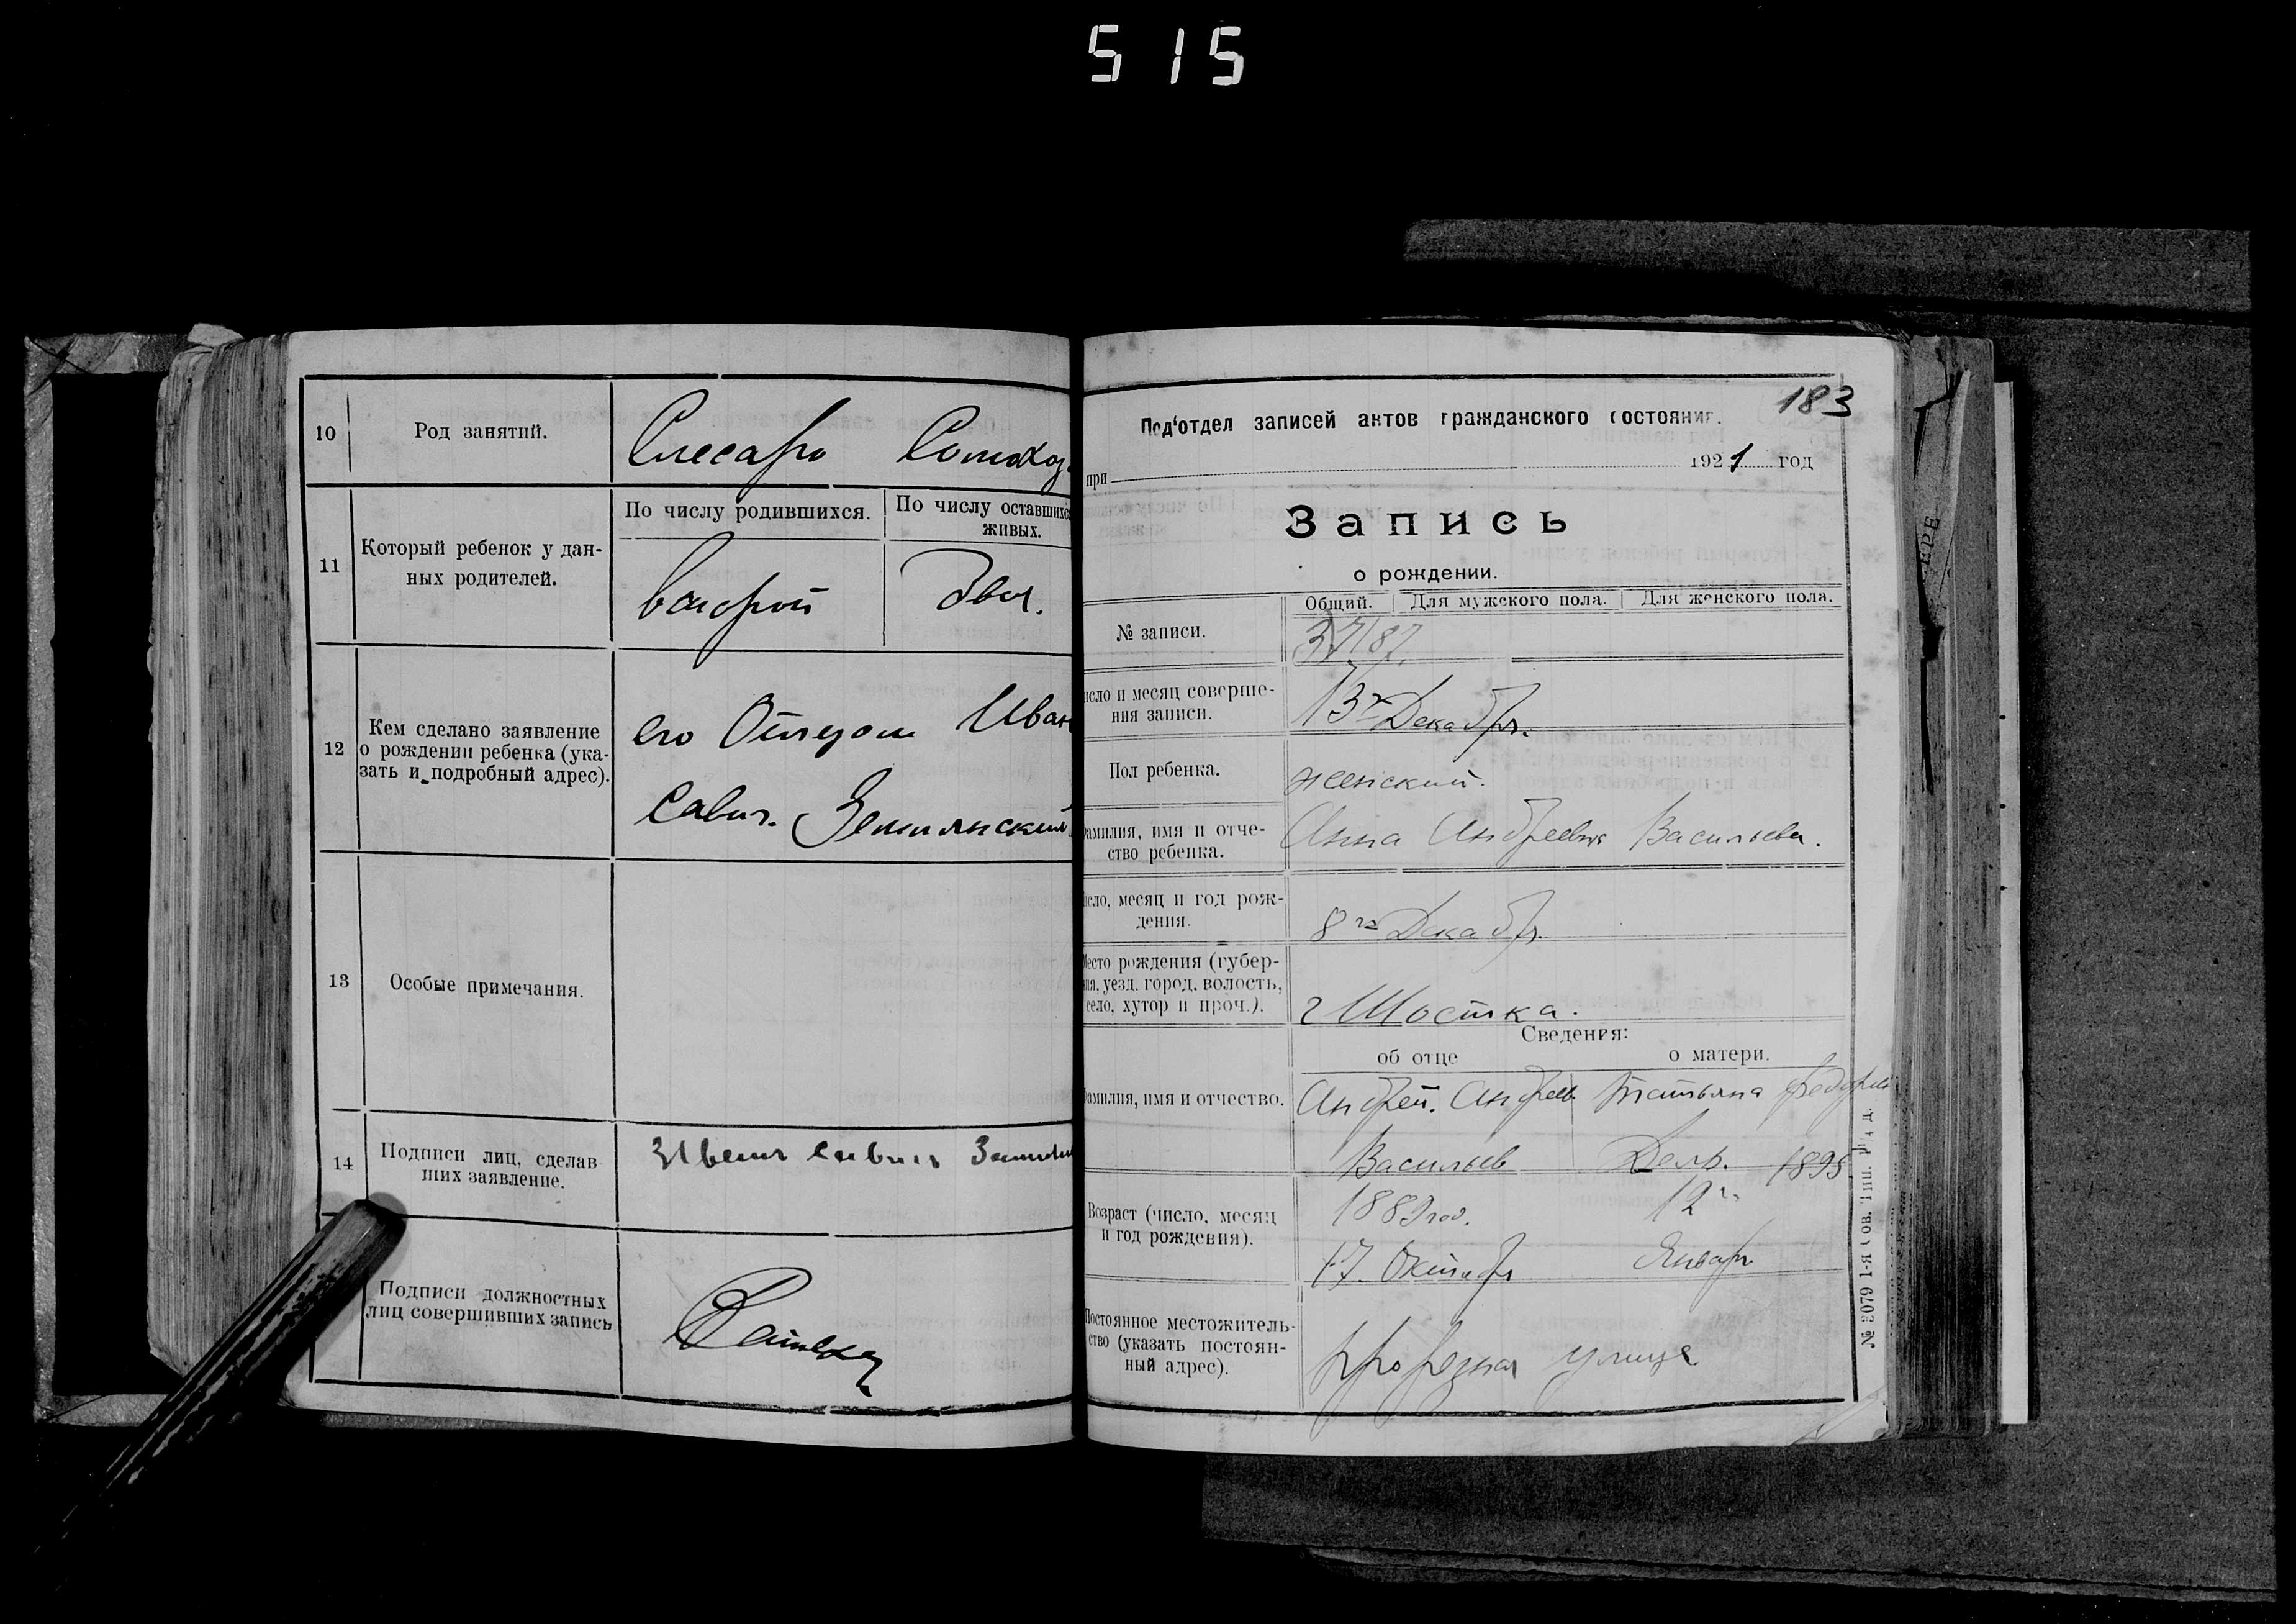 515
10 Род занятий. Слесарь
11 Который ребенок у дан-
ных родителей.
По числу родившихся. По числу оставшихс
живых.
второй Два.
12 Кем сделано заявление
о рождении ребенка (ука-
зать и подробный адрес).
его Отцом Иван
Савич.Землянский
13 Особые примечания.
14 Подписи лиц, сделав
ших заявление.
Подписи должностных
лиц совершивших запись
183
Под'отдел записей актов гражданского состояния.
при 1921 год
Запись
о рождении.
Общий. Для мужского пола. Для женского пола.
№ записи. 187.
исло и месяц соверше-
ния записи.
13го Декабря.
Пол ребенка. женский.
амилия, имя и отче-
ство ребенка.
Анна Андреевна Васильева.
исло, месяц и год рож-
дения.
8го Декабря.
Место рождения (губер-
ия, уезд, город, волость,
село, хутор и проч.).
г Шостка.
Сведения:
об отце о матери.
амилия, имя и отчество. Андрей. Андреев Татьяна
Васильев 1895
Возраст (число, месяц
и год рождения).
1889 год. 12го
17. Октября Января
Постоянное местожитель-
ство (указать постоян-
ный адрес).
улица
№ 3079 1-я Сов. Тип.